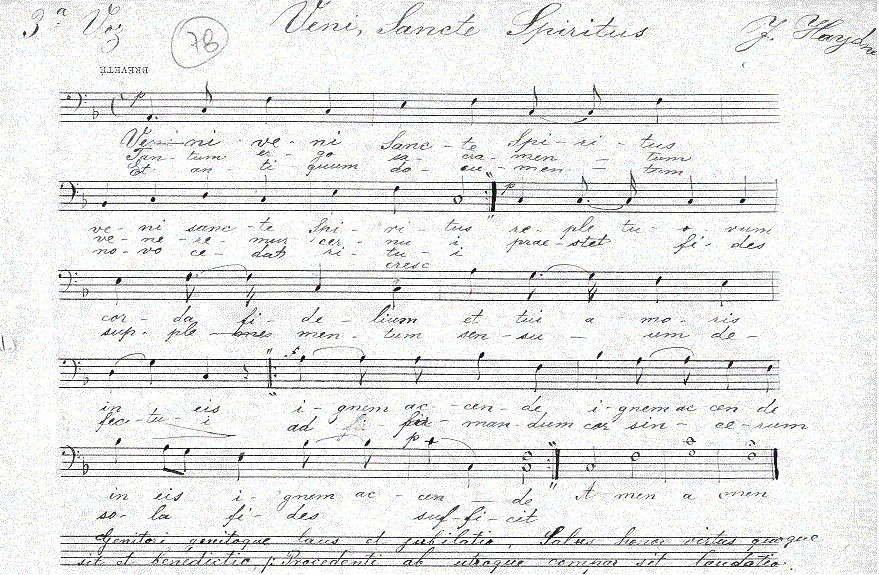 3ª Voz 78 Veni, Sancte Spiritus J. Haydn
BREVETÉ
p
Veni ni ve - ni Sanc - te Spi - ri - tus
Tan - tum er - go sa - cra - men - tum
Et an - ti quum do - cu - men - tum
p
ve - ni sanc - te Spi - ri - tus re - ple tu - o rum
ve - ne - re - mur cer - nu i prae - stet fi - des
no - vo ce - dat ri - tu - i
cresc
cor - da fi - de - lium et tui a - mo - ris
sup - ple - men - tum sen - su - um de -
f
in eis i - gnem ac - cen - de i - gnem ac cen de
fec - tu - i ad fir - man - dum cor sin - ce - rum
p
in eis i - gnem ac - cen - de A - men a men
so - la fi - des suf - fi - cit
Genitori genitoque laus et jubilatio, Salus honor virtus quoque
sit et benedictio: Procedenti ab utroque compar sit laudatio.